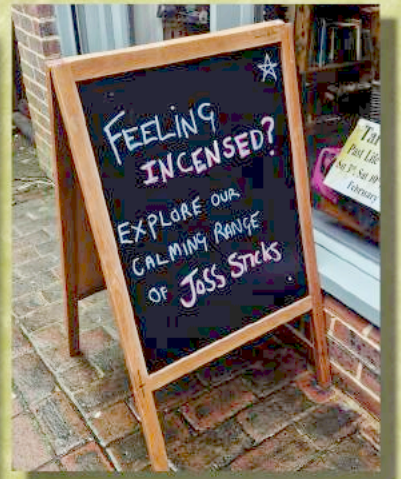 FEELING
INCENSED?
EXPLORE OUR
CALMING RANGE
OF JOSS STICKS
Past Life
February